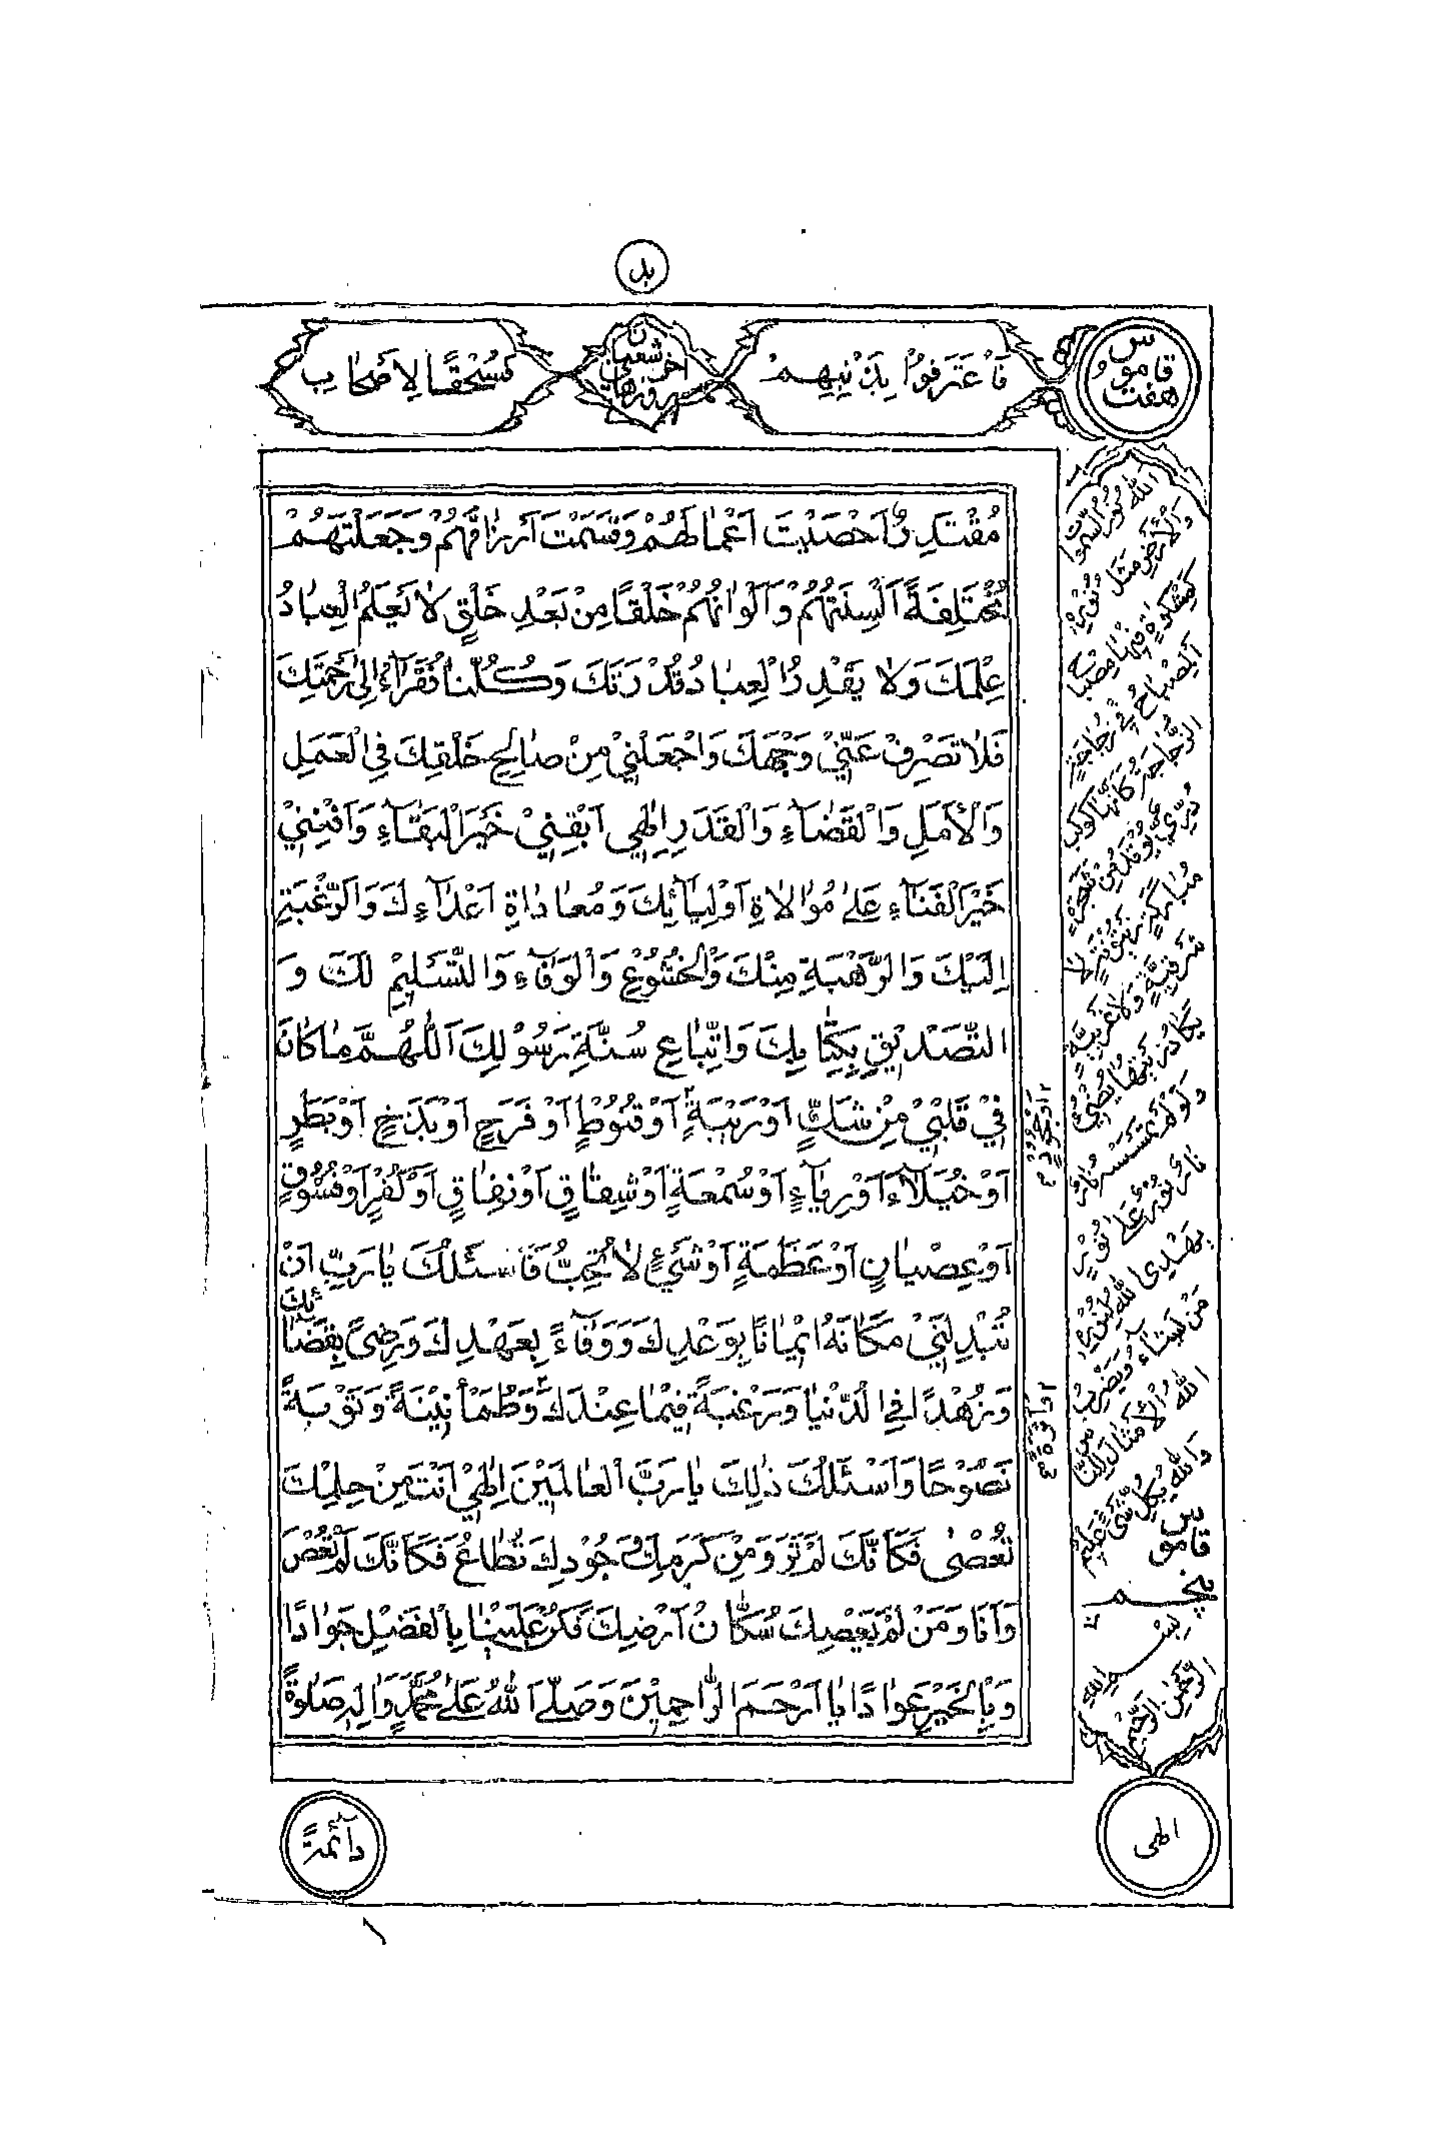 فَاعْتَرَفُوا بِذَنْبِهِمْ
آخر شعبان
فَسُحْقًا لِأَصْحَابِ
قاموس
هفت
مُقْتَدِرٌ اَحْصَيْتَ اَعْمٰالَهُمْ وَقَسَمْتَ اَرْزٰاقَهُمْ وَجَعَلْتَهُمْ
مُخْتَلِفَةً اَلْسِنَتُهُمْ وَاَلْوٰانُهُمْ خَلْقًا مِنْ بَعْدِ خَلْقٍ لاٰ يَعْلَمُ الْعِبٰادُ
عِلْمَكَ وَلاٰ يَقْدِرُ الْعِبٰادُ قُدْرَتَكَ وَكُلُّنٰا فُقَرٰآءُ اِلىٰ رَحْمَتِكَ
فَلاٰ تَصْرِفْ عَنّيْ وَجْهَكَ وَاجْعَلْنيْ مِنْ صٰالِحِ خَلْقِكَ فِي الْعَمَلِ
وَالْأَمَلِ وَالْقَضٰآءِ وَالْقَدَرِ اِلٰهِي اَبْقِنِيْ خَيْرَ الْبَقٰآءِ وَاَفْنِنِيْ
خَيْرَ الْفَنٰآءِ عَلىٰ مُوٰالاٰةِ اَوْلِيٰآئِكَ وَمُعٰادٰاةِ اَعْدٰآءِكَ وَالرَّغْبَةِ
اِلَيْكَ وَالرَّهْبَةِ مِنْكَ وَالْخُشُوْعِ وَالْوَفٰآءِ وَالتَّسْلِيْمِ لَكَ وَ
التَّصْدِيْقِ بِكِتٰابِكَ وَاتِّبٰاعِ سُنَّةِ رَسُوْلِكَ اَللّٰهُمَّ مٰا كٰانَ
فِيْ قَلْبيْ مِنْ شَكٍّ اَوْ رَيْبَةٍ اَوْ قُنُوْطٍ اَوْ فَرَحٍ اَوْ بَذَخٍ اَوْ بَطَرٍ
اَوْ خُيَلاٰءَ اَوْ رِيٰآءٍ اَوْ سُمْعَةٍ اَوْ شِقٰاقٍ اَوْ نِفٰاقٍ اَوْ كُفْرٍ اَوْ فُسُوْقٍ
اَوْ عِصْيٰانٍ اَوْ عَظَمَةٍ اَوْ شَيْءٍ لاٰ تُحِبُّ فَاَسْئَلُكَ يٰا رَبِّ اَنْ
تُبْدِلَنيْ مَكٰانَهُ اِيْمٰانًا بِوَعْدِكَ وَوَفٰآءً بِعَهْدِكَ وَرِضىً بِقَضٰائِكَ
وَزُهْدًا فِي الدُّنْيٰا وَرَغْبَةً فِيْمٰا عِنْدَكَ وَطُمَأْنِيْنَةً وَتَوْبَةً
نَصُوْحًا وَاَسْئَلُكَ ذٰلِكَ يٰا رَبَّ الْعٰالَمِيْنَ اِلٰهيْ اَنْتَ مِنْ حِلْمِكَ
تُعْصٰى فَكَاَنَّكَ لَمْ تَرَ وَمِنْ كَرَمِكَ وَجُوْدِكَ تُطٰاعُ فَكَاَنَّكَ لَمْ تُعْصَ
وَاَنَا وَمَنْ لَمْ يَعْصِكَ سُكّٰانُ اَرْضِكَ فَكُنْ عَلَيْنٰا بِالْفَضْلِ جَوٰادًا
وَبِالْخَيْرِ عَوٰادًا يٰا اَرْحَمَ الرّٰاحِمِيْنَ وَصَلَّى اللّٰهُ عَلىٰ مُحَمَّدٍ وَاٰلِهِ صَلٰوةً
اَوْ جُحُوْدٍ
اللّٰهُ نُورُ السَّمٰوٰاتِ
وَالْأَرْضِ مَثَلُ نُوْرِهِ
كَمِشْكٰوةٍ فِيْهٰا مِصْبٰاحٌ
اَلْمِصْبٰاحُ فِيْ زُجٰاجَةٍ
الزُّجٰاجَةُ كَاَنَّهٰا كَوْكَبٌ
دُرِّيٌّ يُوْقَدُ مِنْ شَجَرَةٍ
مُبٰارَكَةٍ زَيْتُوْنَةٍ لاٰ
شَرْقِيَّةٍ وَلاٰ غَرْبِيَّةٍ
يَكٰادُ زَيْتُهٰا يُضِيْءُ
وَلَوْ لَمْ تَمْسَسْهُ نٰارٌ
نُوْرٌ عَلىٰ نُوْرٍ
يَهْدِي اللّٰهُ لِنُوْرِهِ
مَنْ يَشٰآءُ وَيَضْرِبُ
اللّٰهُ الْأَمْثٰالَ لِلنّٰاسِ
وَاللّٰهُ بِكُلِّ شَيْءٍ عَلِيْمٌ
قاموس
پنجم
بسم الله
الرَّحْمٰنِ الرَّحِيْمِ
الهى
دٰآئِمَةً